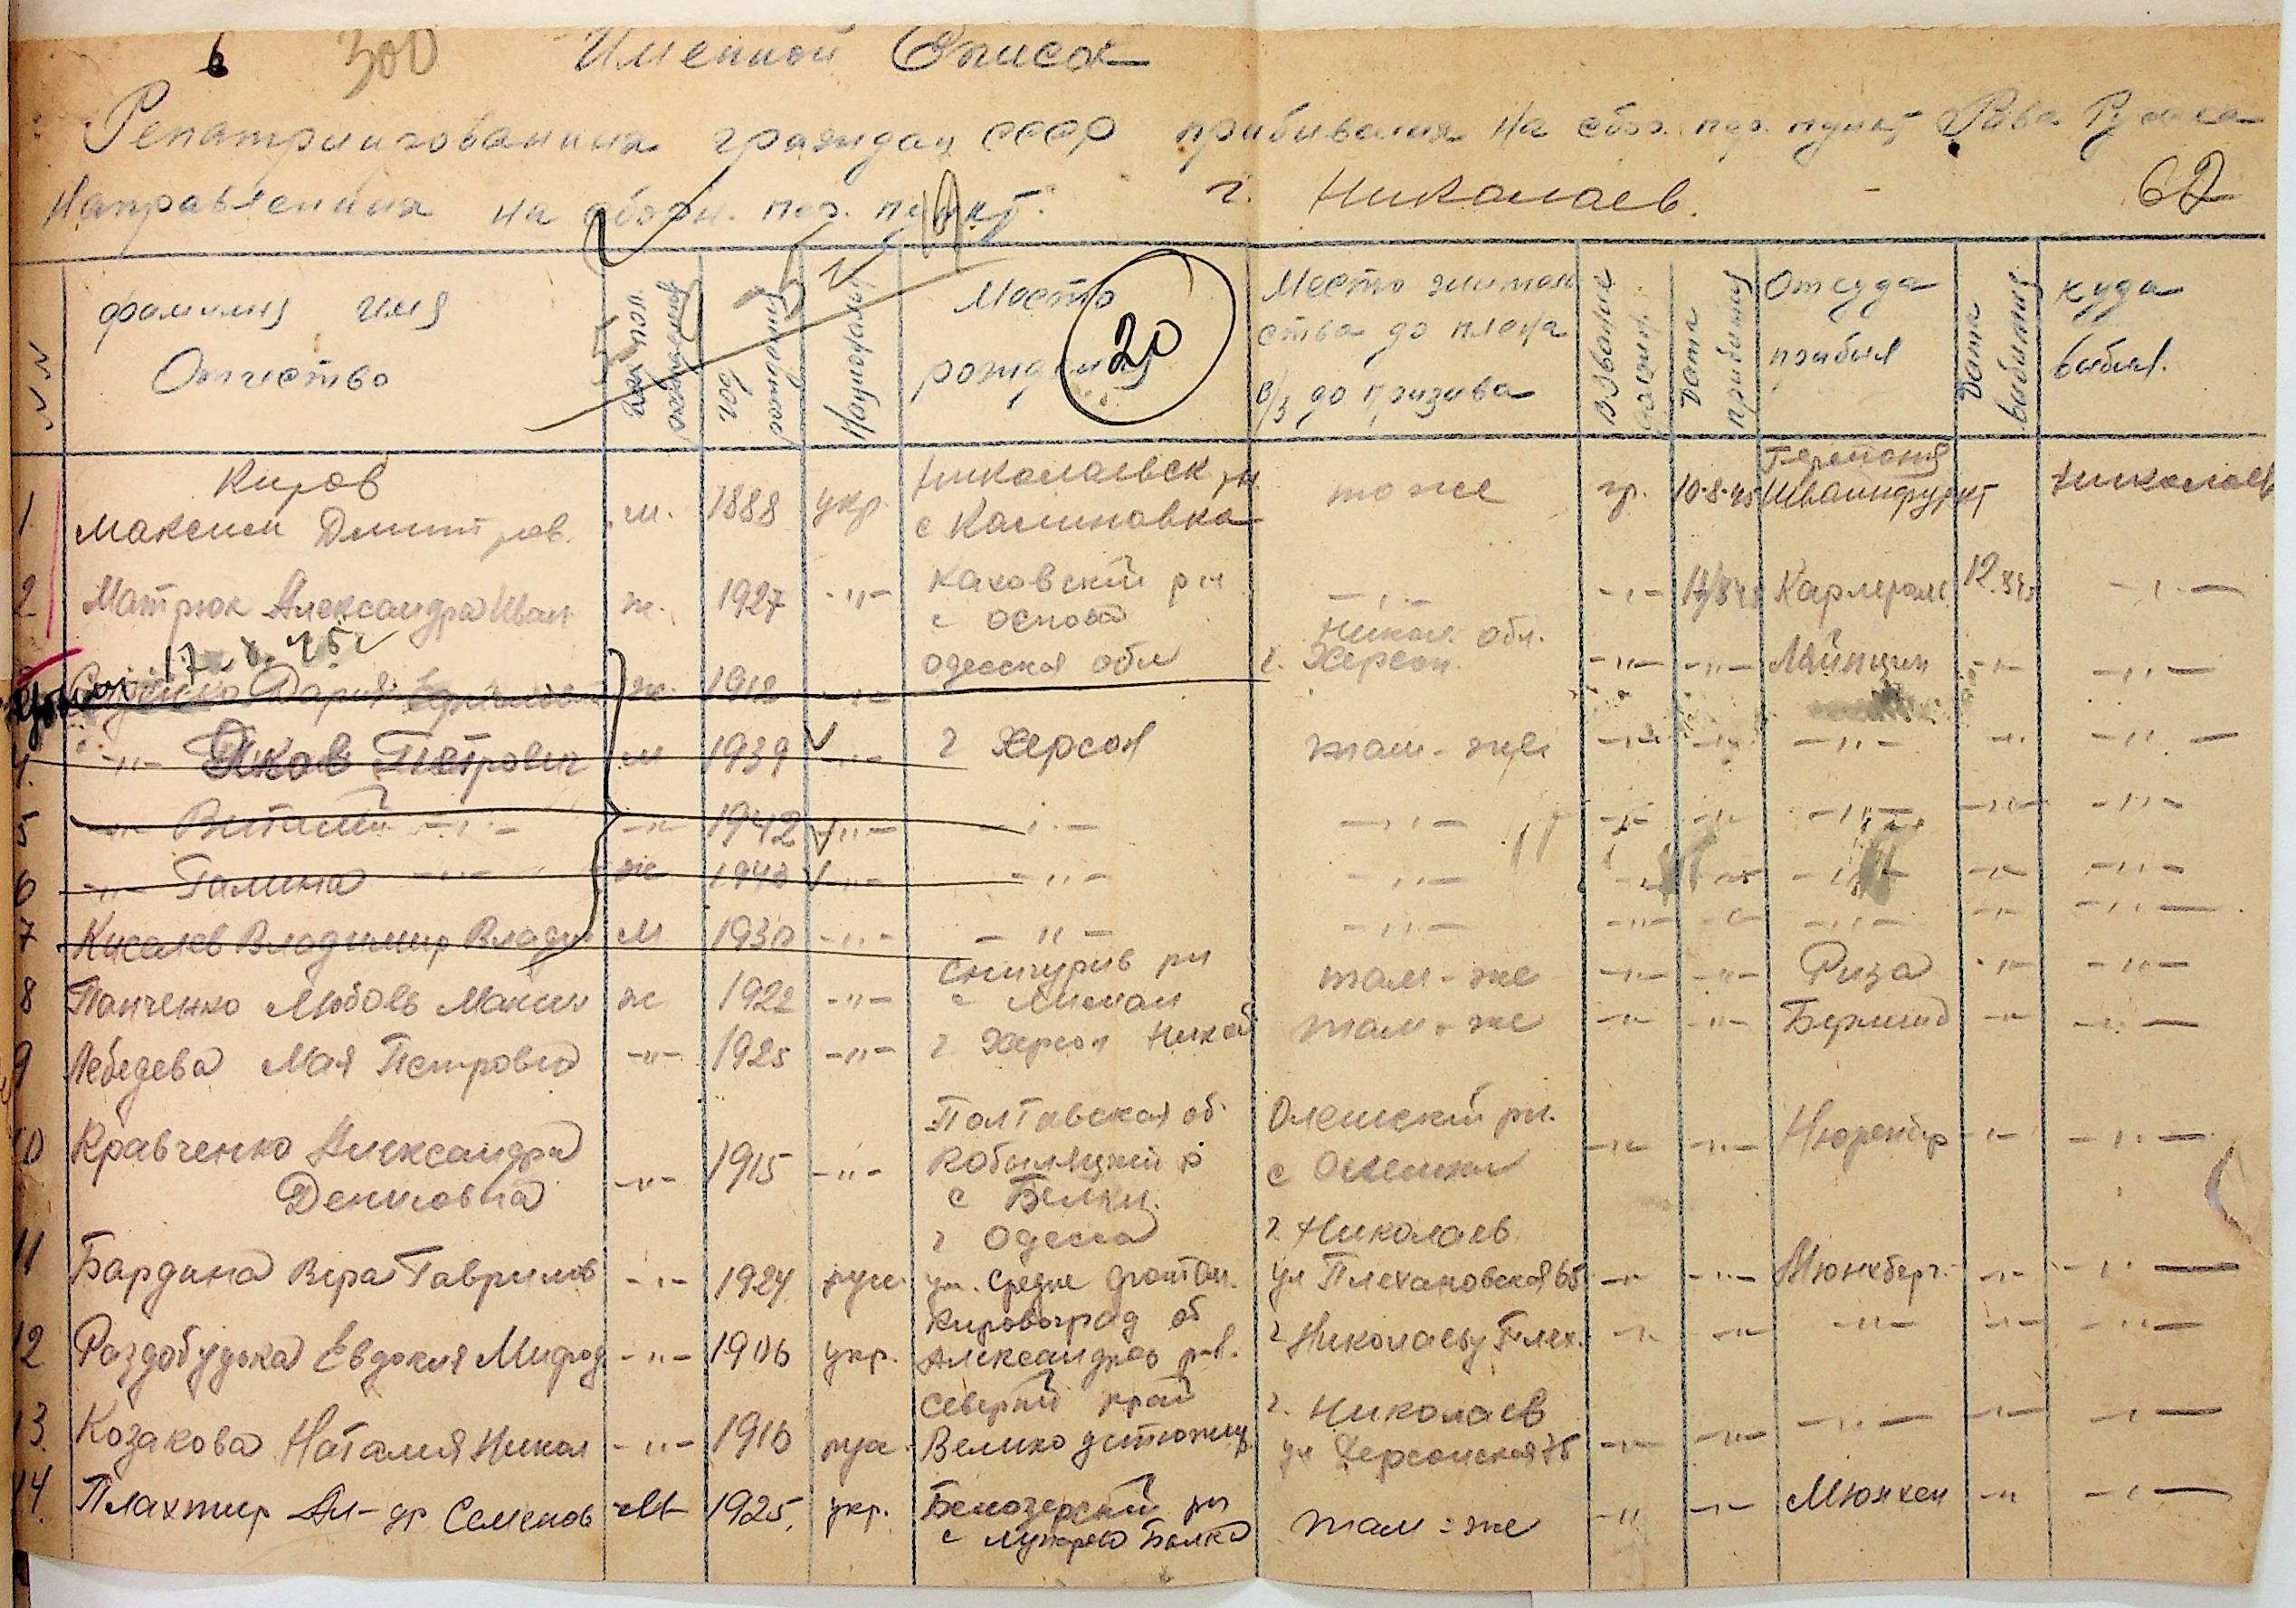 6 300 Именной Список
Репатриированных граждан СССР прибывших На сбор. пер. пункт Рава Руская
Направленных на сборн. пер. пункт. г. Николаев. 62
NN
фамилия имя
Отчество
Год
рождения
Национальн
Место
рождения
20
Место житель
ства до плена
в/з до призыва
Дата
прибытия
Откуда
прибыл
Дата
выбытия
куда
выбыл.
1 Киров
Максим Дмитров. м. 1888 укр. Николаевск рн. с Калиновка то же гр. 10-8-45 Германия Швайнфурт Николаев
2 Матрюк Александра Иван ж. 1927 -"- Каховский рн
с основа -"- -"- 12.845 -"-
17 8 45г
Дария ж. 1912 -"- Одесская обл Никол. обл.
г. Херсон. -"- -"- -"- -"-
4. -"- Яков Петрович м 1939 -"- г Херсон там-же -"- -"- -"- -"- -"-
5 -"- Виталий -"- -"- 1942 -"- -"- -"- -"- -"- -"- -"- -"-
6 -"- Галина -"- ж -"- -"- -"- -"- -"- -"- -"- -"-
7 Киселев Владимир Влади м 1930 -"- -"- -"- -"- -"- -"- -"- -"-
8 Панченко Любовь Максим ж 1922 -"- Снигурив рн
с Лиман там-же -"- -"- Риза -"- -"-
9 Лебедева Мая Петровна -"- 1925 -"- г Херсон Никол там-же -"- -"- Берлин -"- -"-
10 Кравченко Александра
Денисовна -"- 1915 -"- Полтавская об
Кобыляцкий р
с Белики. Олешский рн.
с Олешки -"- -"- Нюренбр -"- -"-
11 Бардина Вера Гаврилов -"- 1924 рус. г Одесса
ул. Средне фонтан. г. Николаев
ул Плехановская 65 -"- -"- Мюнхберг. -"- -"-
12 Раздобудька Евдокия Мифод -"- 1906 укр. Кировоград об
Александров р-в. г Николаев у Плех. -"- -"- -"- -"- -"-
13. Козакова Наталия Никол -"- 1916 рус. Северный край
Велико устюжиц г. Николаев
ул Херсонская 75 -"- -"- -"- -"- -"-
14. Плахтир Ал-др Семенов м 1925. укр. Белозерский рн
с Балка там-же -"- -"- Мюнхен -"- -"-